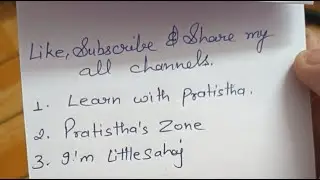 Like, Subscribe & Share my
all channels.
1. Learn with pratistha.
2. Pratistha's Zone
3. I'm Littlesahaj